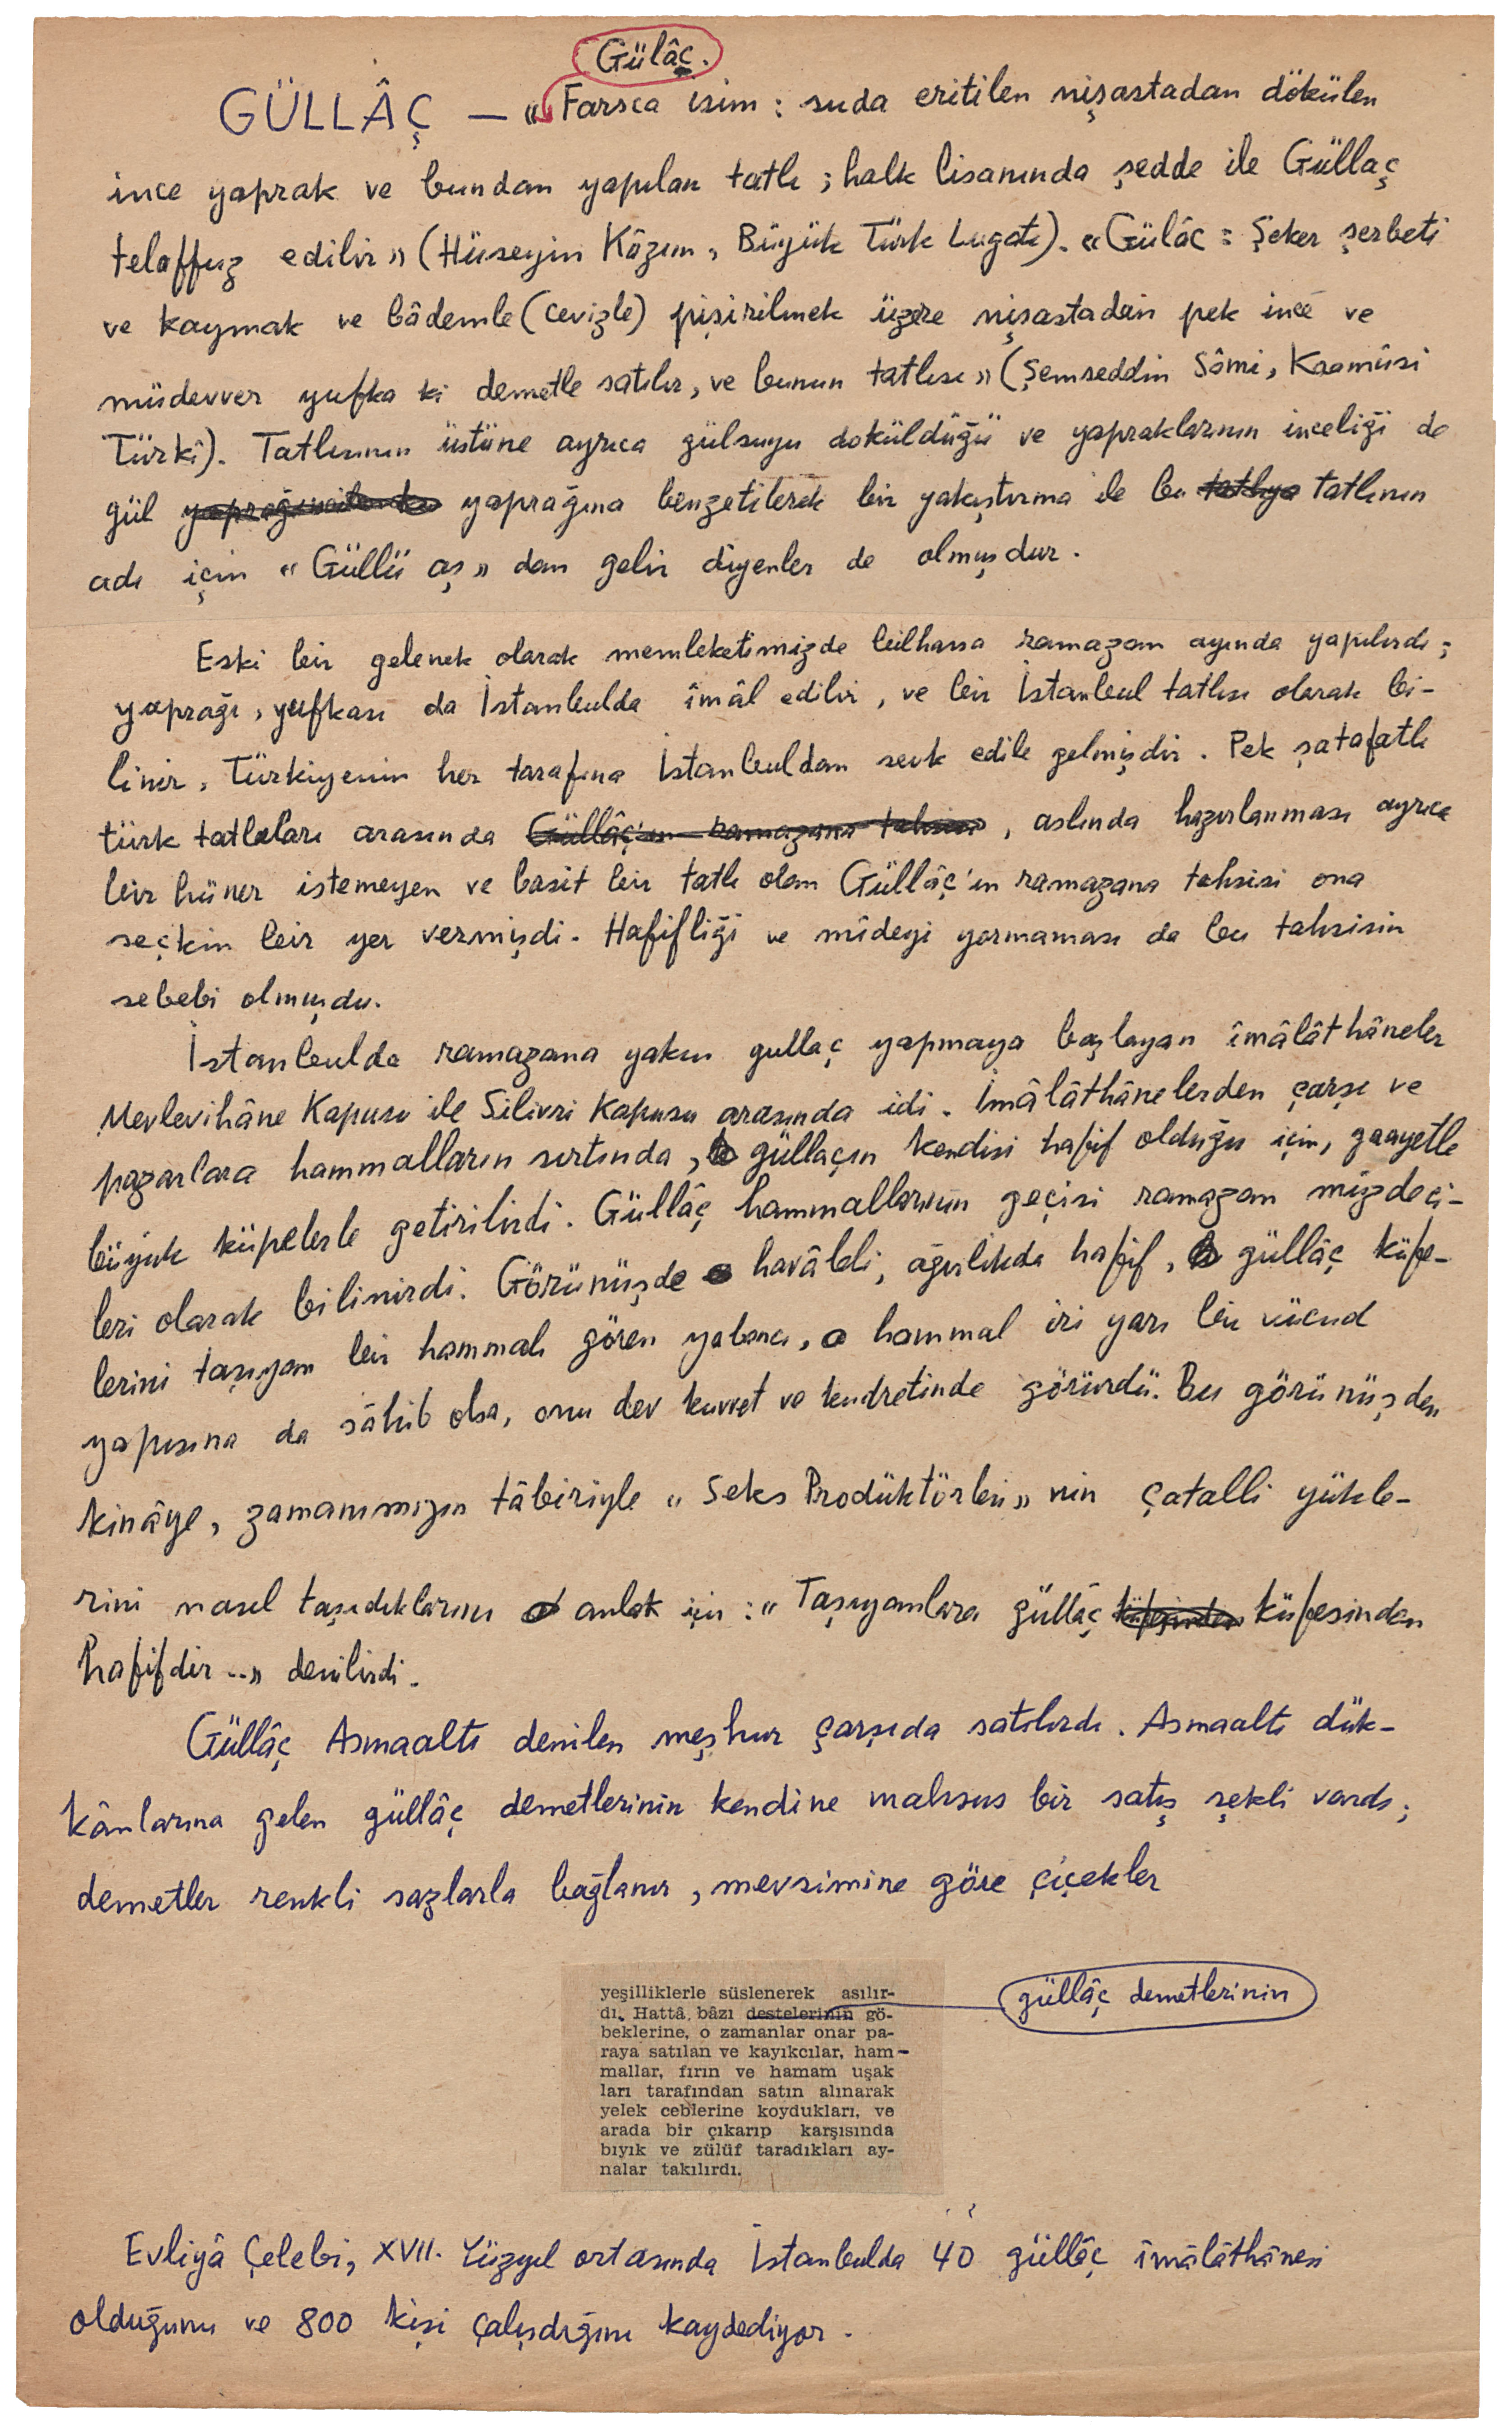 Gülâç.
GÜLLÂÇ — « Farsca isim : suda eritilen nişastadan dökülen
ince yaprak ve bundan yapılan tatlı ; halk lisanında şedde ile Güllaç
telaffuz edilir » (Hüseyin Kâzım, Büyük Türk Lugatı). «Gülâc = Şeker şerbeti
ve kaymak ve bâdemle (cevizle) pişirilmek üzere nişastadan pek ince ve
müdevver yufka ki demetle satılır, ve bunun tatlısı » (Şemseddin Sâmi, Kaamûsi
Türkî). Tatlısının üstüne ayrıca gülsuyu doküldüğü ve yapraklarının inceliği de
gül yaprağına benzetilerek bir yakıştırma ile bu tatlıya tatlının
adı için « Güllü aş » dan gelir diyenler de olmuşdur.
Eski bir gelenek olarak memleketimizde bilhassa ramazan ayında yapılırdı ;
yaprağı, yufkası da İstanbulda îmâl edilir, ve bir İstanbul tatlısı olarak bi-
linir, Türkiyenin her tarafına İstanbuldan sevk edile gelmişdir. Pek şatafatlı
türk tatlıları arasında Güllâç'ın ramazana tahsisi, aslında hazırlanması ayrıca
bir hüner istemeyen ve basit bir tatlı olan Güllâç'ın ramazana tahsisi ona
seçkin bir yer vermişdi. Hafifliği ve mîdeyi yormaması da bu tahsisin
sebebi olmuşdu.
İstanbulda ramazana yakın gullaç yapmaya başlayan îmâlâthâneler
Mevlevihâne Kapusu ile Silivri Kapusu arasında idi. İmâlâthânelerden çarşı ve
pazarlara hammalların sırtında, güllaçın kendisi hafif olduğu için, gaayetle
büyük küpelerle getirilirdi. Güllâç hammallarının geçisi ramazan müjdeci-
leri olarak bilinirdi. Görünüşde havâleli, ağırlıkda hafif, güllâç küfe-
lerini taşıyan bir hammalı gören yabancı, o hammal iri yarı bir vücud
yapısına da sâhib olsa, onu dev kuvvet ve kudretinde görürdü. Bu görünüşden
kinâye, zamanımızın tâbiriyle « Seks Prodüktörleri » nin çatalli yükle-
rini nasıl taşıdıklarını anlat için : « Taşıyanlara güllâç küfesinden küfesinden
hafifdir ..» denilirdi.
Güllâç Asmaaltı denilen meşhur çarşıda satılırdı. Asmaaltı dük-
kânlarına gelen güllâç demetlerinin kendine mahsus bir satış şekli vardı ;
demetler renkli sazlarla bağlanır, mevsimine göre çiçekler
yeşilliklerle süslenerek asılır-
dı. Hattâ, bâzı destelerinin gö-
güllâç demetlerinin
beklerine, o zamanlar onar pa-
raya satılan ve kayıkcılar, ham-
mallar, fırın ve hamam uşak
ları tarafından satın alınarak
yelek ceblerine koydukları, ve
arada bir çıkarıp karşısında
bıyık ve zülüf taradıkları ay-
nalar takılırdı.
Evliyâ Çelebi, XVII. Yüzyıl ortasında İstanbulda 40 güllâç îmâlâthânesi
olduğunu ve 800 kişi çalışdığını kaydediyor.